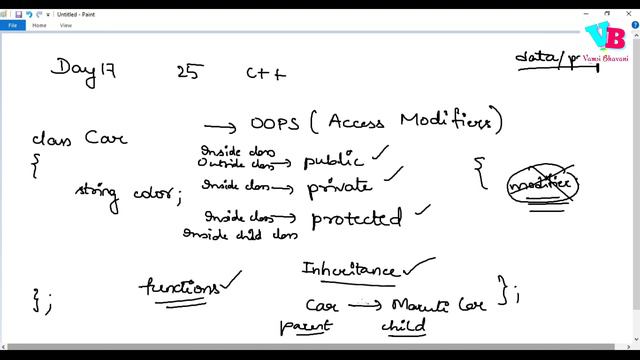 Untitled - Paint
File Home View
VB
Vamsi Bhavani
data/pr
Day 17 25 C++
→ OOPS (Access Modifiers)
class Car
{
string color;
};
Inside class
Outside class → public ✓
Inside class → private ✓
Inside class → protected ✓
Inside child class
{ modifier
};
functions ✓
Inheritance ✓
Car → Maruti Car
parent child